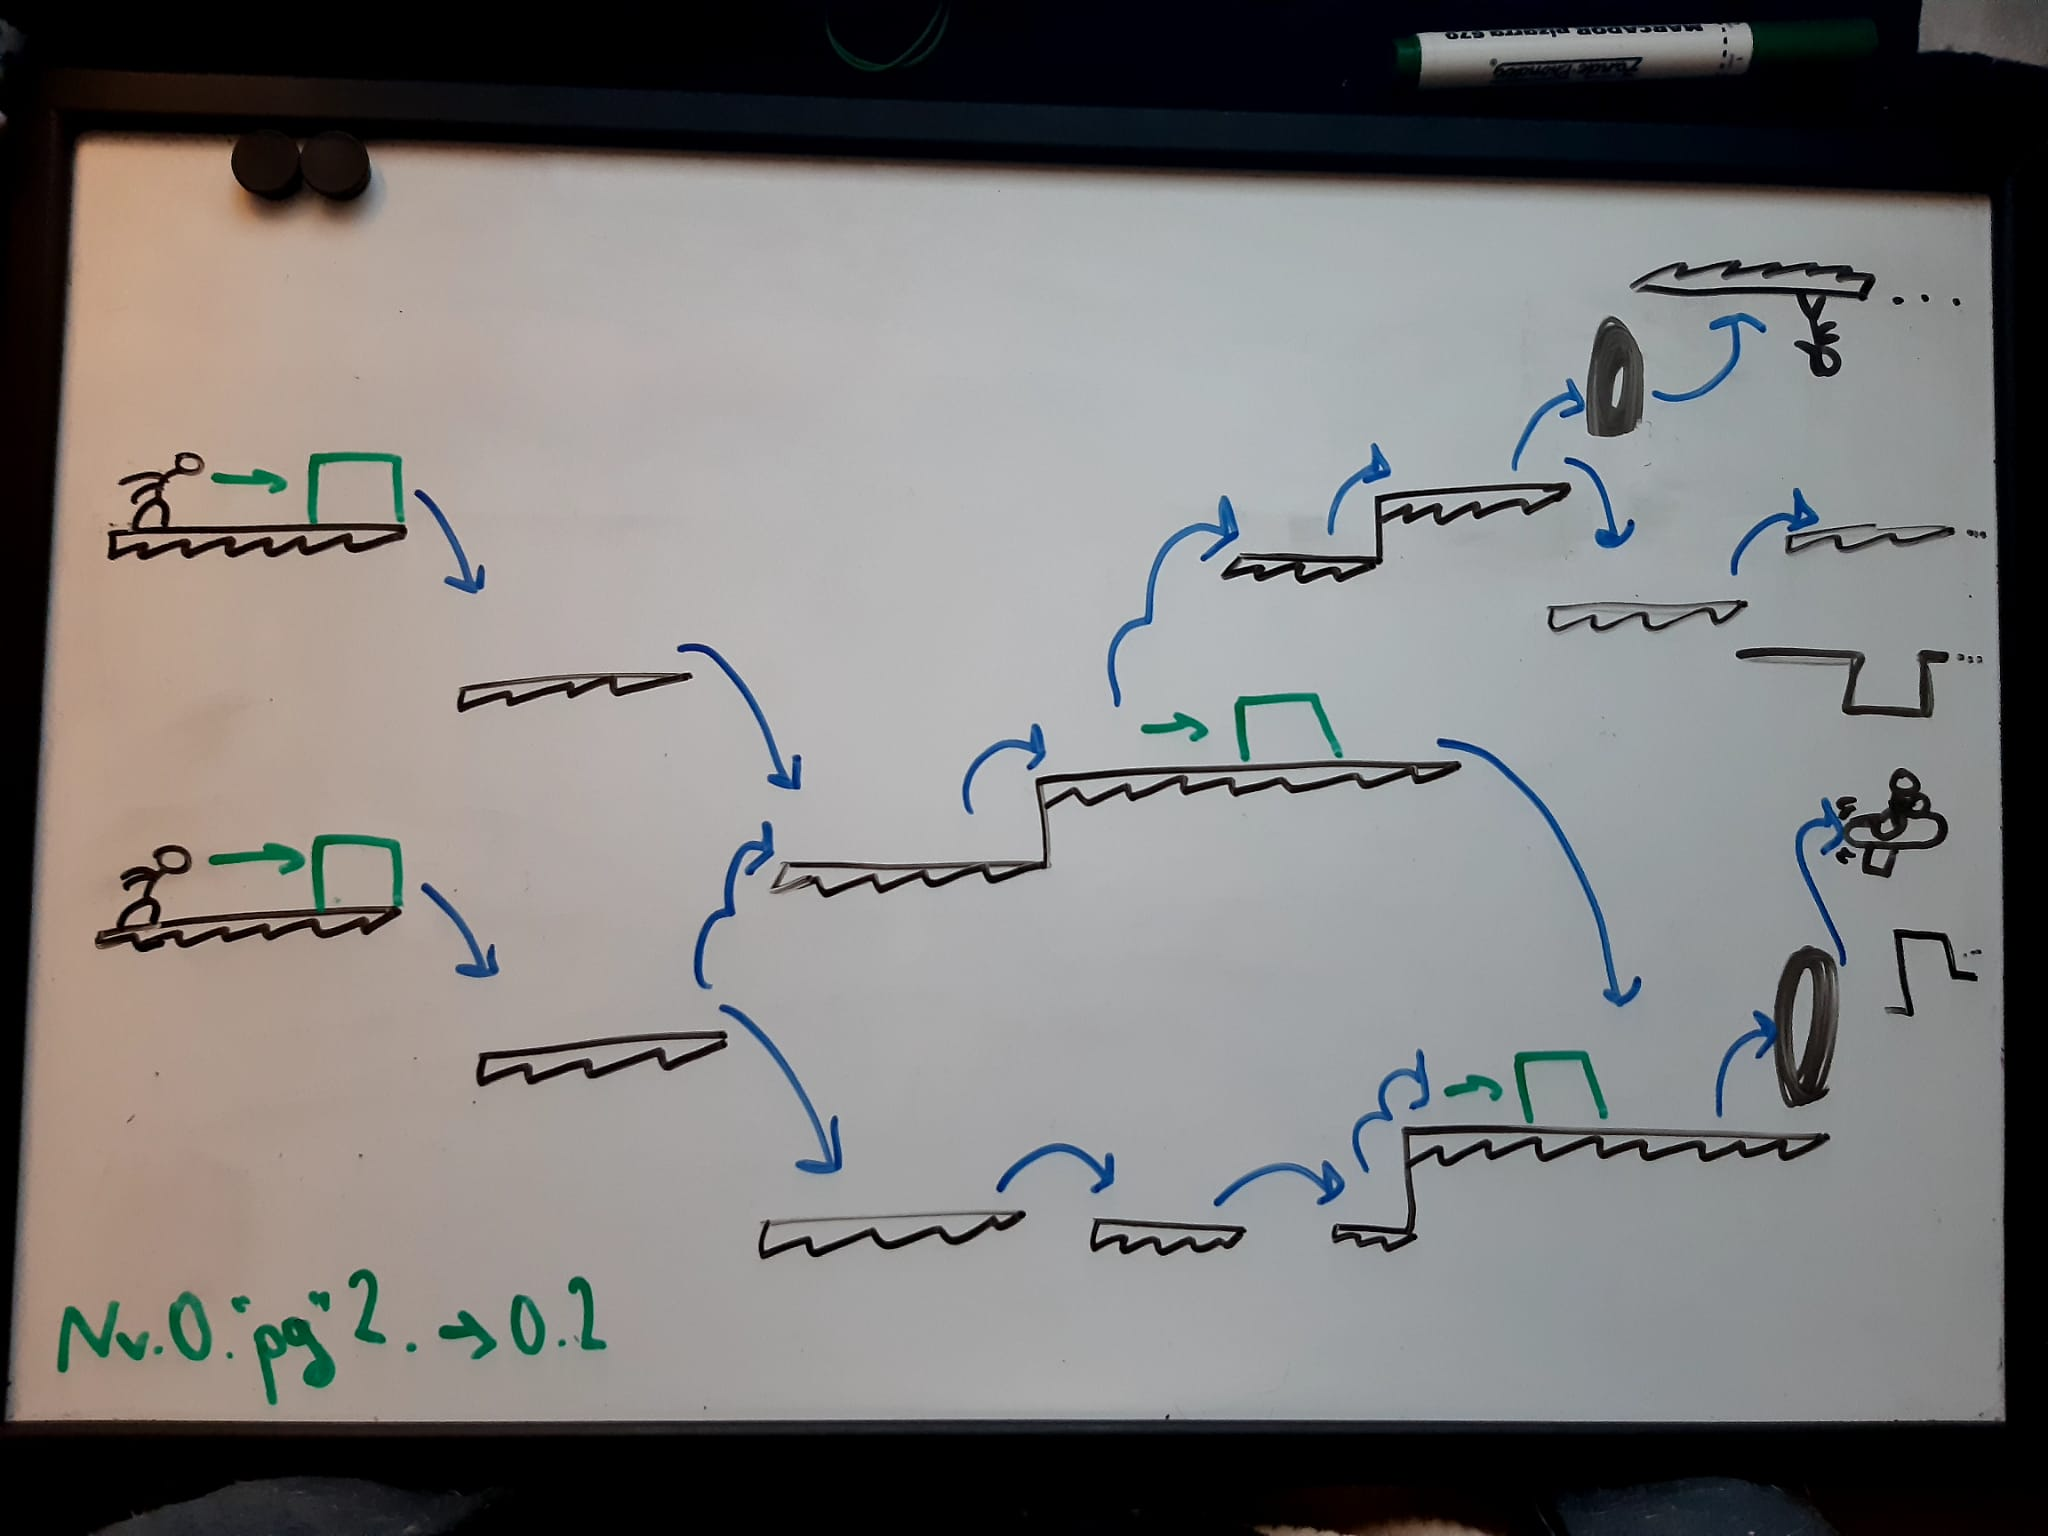 MARCADOR pizarra 670
Nv.0."pg"2. → 0.2